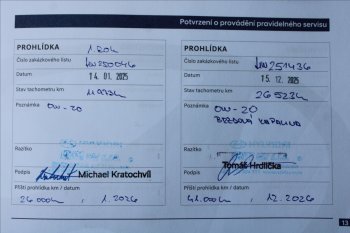 Potvrzení o provádění pravidelného servisu
PROHLÍDKA 1. ROK
Číslo zakázkového listu
Datum 14. 01. 2025
Stav tachometru km
Poznámka 0W-20
Razítko
Podpis Michael Kratochvíl
Příští prohlídka km / datum
26000 km 1. 2026
PROHLÍDKA
Číslo zakázkového listu
Datum 15. 12. 2025
Stav tachometru km 26523km
Poznámka 0W-20
BRZDOVÁ KAPALINA
Razítko
Podpis Tomáš Hrdlička
Příští prohlídka km / datum
41.000km 12. 2026
13